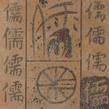 儒
儒
儒
儒
儒
儒
儒
儒